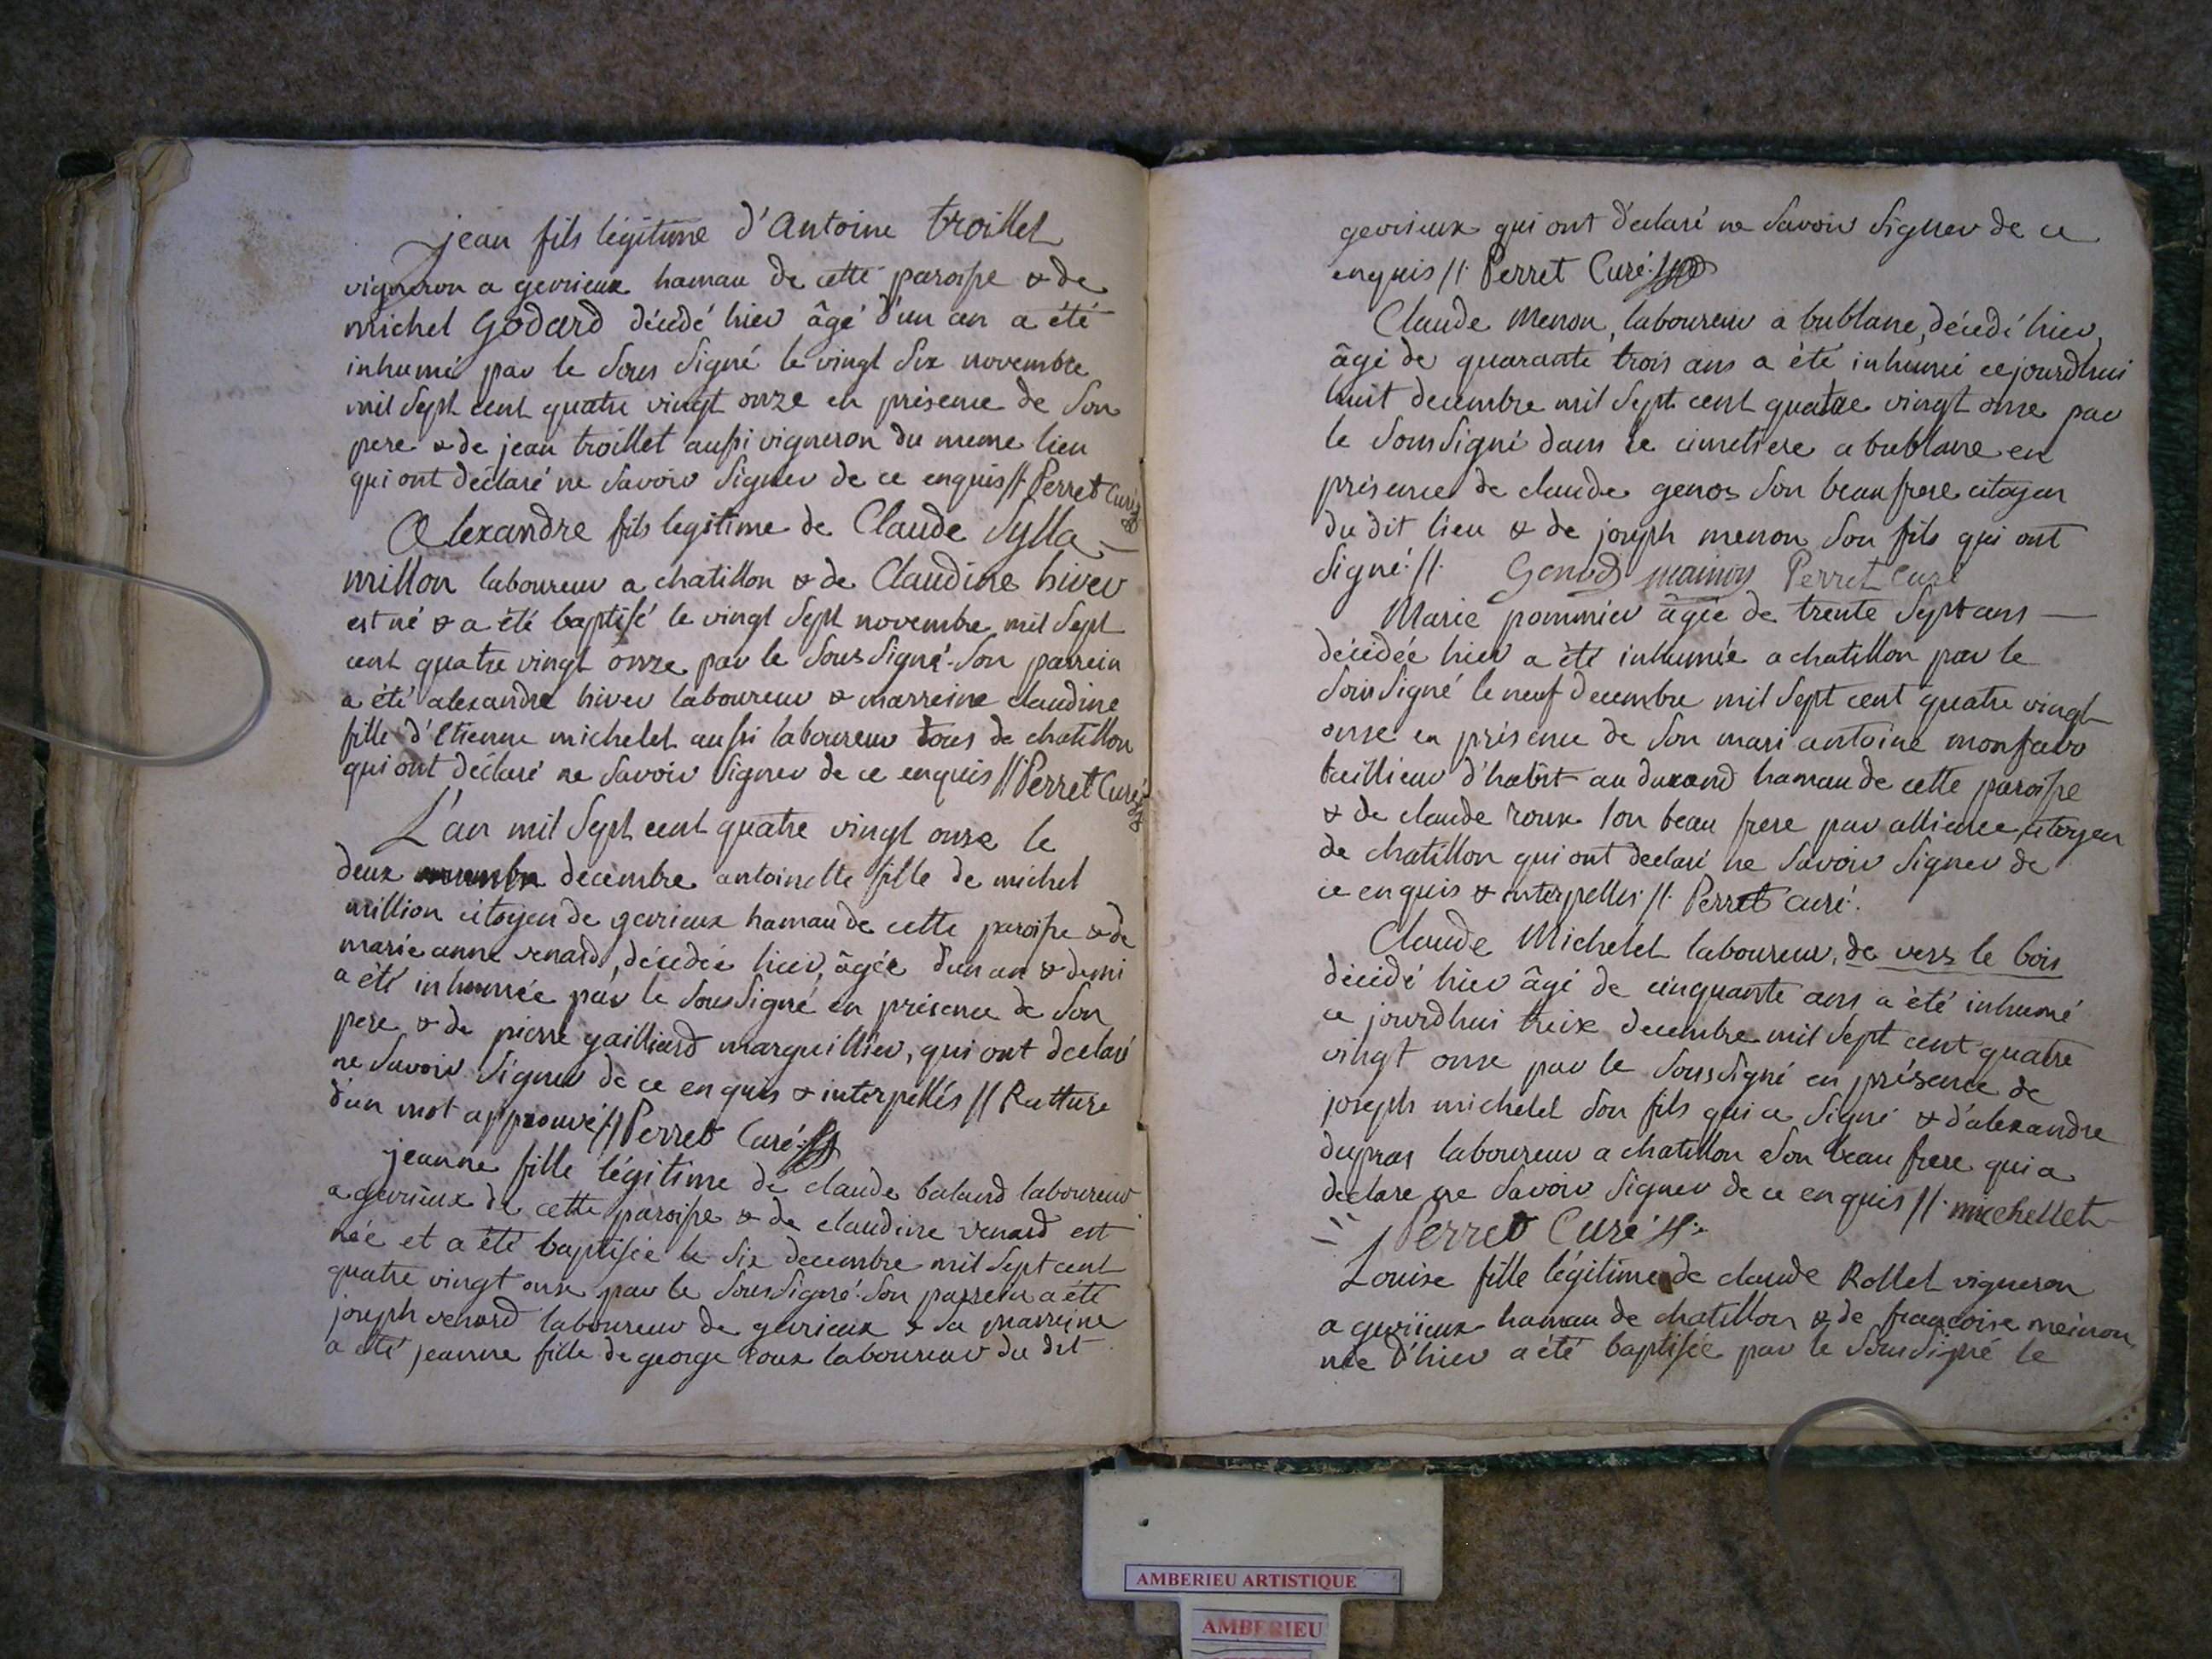 jean fils légitime d'Antoine troillet
vigneron a gevrieux hamau de cette paroisse & de
michel Godard décédé hier âgé d'un an a été
inhumé par le sous signé le vingt six novembre
mil sept cent quatre vingt onze en présence de son
pere & de jean troillet aussi vigneron du meme lieu
qui ont déclaré ne savoir signer de ce enquis // Perret Curé
Alexandre fils legitime de Claude Sylla
millon laboureur a chatillon & de Claudine hiver
est né & a été baptisé le vingt sept novembre mil sept
cent quatre vingt onze par le sous signé. son parrein
a été alexandre hiver laboureur & marreine claudine
fille d'Etienne michelet aussi laboureur tous de chatillon
qui ont déclaré ne savoir signer de ce enquis // Perret Curé
L'an mil sept cent quatre vingt onze le
deux decembre antoinette fille de michel
million citoyen de gevrieux hamau de cette paroisse & de
marie anne venard, décédée hier, âgée d'un an & demi
a été inhumée par le soussigné en présence de son
pere & de pierre gailliard marguillier, qui ont declaré
ne savoir signer de ce enquis & interpellés // Ratture
d'un mot approuvé // Perret Curé
jeanne fille légitime de claude balard laboureur
a gevrieux de cette paroisse & de claudine venard est
née et a été baptisée le six decembre mil sept cent
quatre vingt onze par le soussigné. son parrein a été
joseph venard laboureur de gevrieux & sa marreine
a été jeanne fille de george roux laboureur du dit
gevrieux qui ont déclaré ne savoir signer de ce
enquis //. Perret Curé
Claude Menon, laboureur a bublane, décédé hier,
âgé de quarante trois ans a été inhumé cejourdhui
huit decembre mil sept cent quatre vingt onze par
le soussigné dans le cimetiere a bublane en
présence de claude genos son beau frere citoyen
du dit lieu & de joseph menon son fils qui ont
signé. //. Perret Curé
Marie pommier âgée de trente sept ans
décédée hier a été inhumée a chatillon par le
soussigné le neuf decembre mil sept cent quatre vingt
onze en présence de son mari antoine monfavr
taillieur d'habit au durand hamau de cette paroisse
& de claude roux son beau frere par alliance citoyen
de chatillon qui ont declaré ne savoir signer de
ce enquis & interpellés //. Perret Curé.
Claude Michelet laboureur, de vers le bois
décédé hier âgé de cinquante ans a été inhumé
ce jourdhui treize decembre mil sept cent quatre
vingt onze par le soussigné en présence de
joseph michelet son fils qui a signé & d'alexandre
dupras laboureur a chatillon son beau frere qui a
declare ne savoir signer de ce enquis //. michellet
Perret Curé
Louise fille légitime de claude Rollet vigneron
a gevrieux hamau de chatillon & de francoise meinon
née d'hier a été baptisée par le soussigné le
AMBERIEU ARTISTIQUE
AMBERIEU